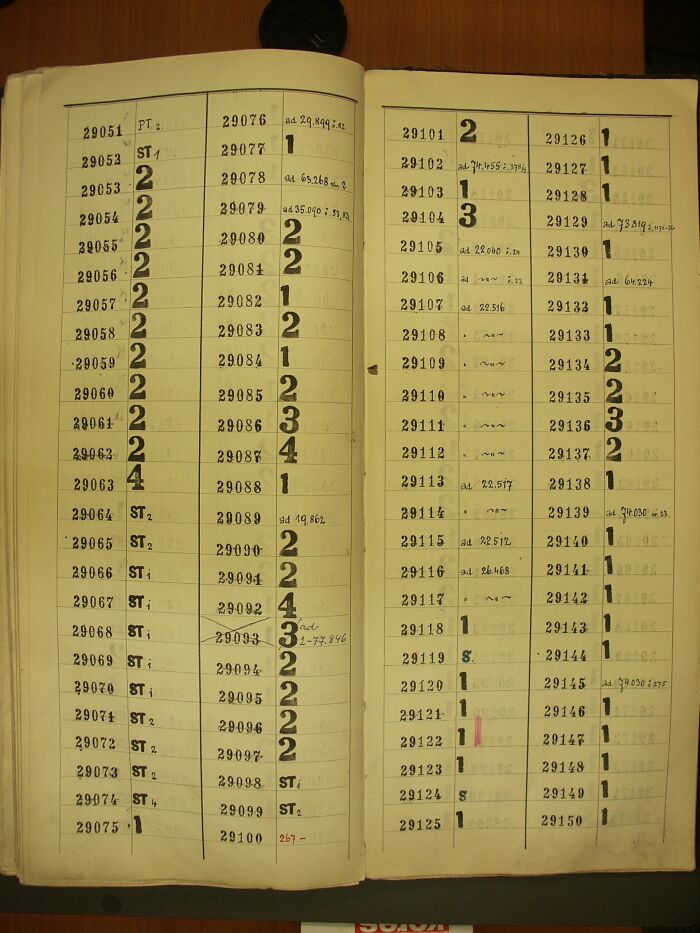 29051 PT. 2.
29052 ST 1
29053 2
29054 2
29055 2
29056 2
29057 2
29058 2
29059 2
29060 2
29061 2
29062 2
29063 4
29064 ST 2
29065 ST 2
29066 ST 1
29067 ST 1
29068 ST 1
29069 ST 1
29070 ST 1
29071 ST 2
29072 ST 2
29073 ST 2
29074 ST 4
29075 1
29076 ad 29.899 :.82
29077 1
29078 ad 63.268 2
29079 ad 35.090 :. 53, 83.
29080 2
29081 2
29082 1
29083 2
29084 1
29085 2
29086 3
29087 4
29088 1
29089 ad 19.862
29090 2
29091 2
29092 4
29093 3 ad 2-77.846
29094 2
29095 2
29096 2
29097 2
29098 ST 1
29099 ST 2
29100 267 -
29101 2
29102 ad 74.455
29103 1
29104 3
29105 ad 22.040 :. 24
29106 ad ~"~ :. 23
29107 ad 22.516
29108 " ~"~
29109 " ~"~
29110 " ~"~
29111 " ~"~
29112 " ~"~
29113 ad 22.517
29114 " ~"~
29115 ad 22.512
29116 ad 26.468
29117 " ~"~
29118 1
29119 S.
29120 1
29121 1
29122 1
29123 1
29124 S
29125 1
29126 1
29127 1
29128 1
29129 ad 73819
29130 1
29131 ad 64.224
29132 1
29133 1
29134 2
29135 2
29136 3
29137 2
29138 1
29139 ad 74.030 23.
29140 1
29141 1
29142 1
29143 1
29144 1
29145 ad 74.030 :. 275
29146 1
29147 1
29148 1
29149 1
29150 1